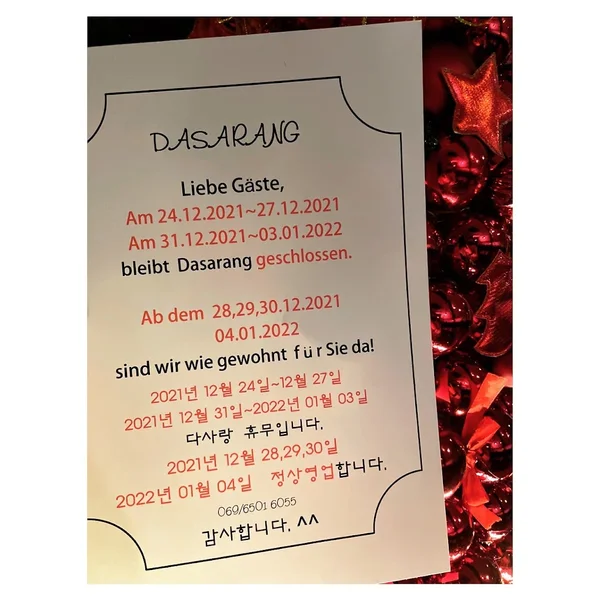 DASARANG
Liebe Gäste,
Am 24.12.2021~27.12.2021
Am 31.12.2021~03.01.2022
bleibt Dasarang geschlossen.
Ab dem 28,29,30.12.2021
04.01.2022
sind wir wie gewohnt für Sie da!
2021년 12월 24일~12월 27일
2021년 12월 31일~2022년 01월 03일
다사랑 휴무입니다.
2021년 12월 28,29,30일
2022년 01월 04일 정상영업합니다.
069/6501 6055
감사합니다. ^^